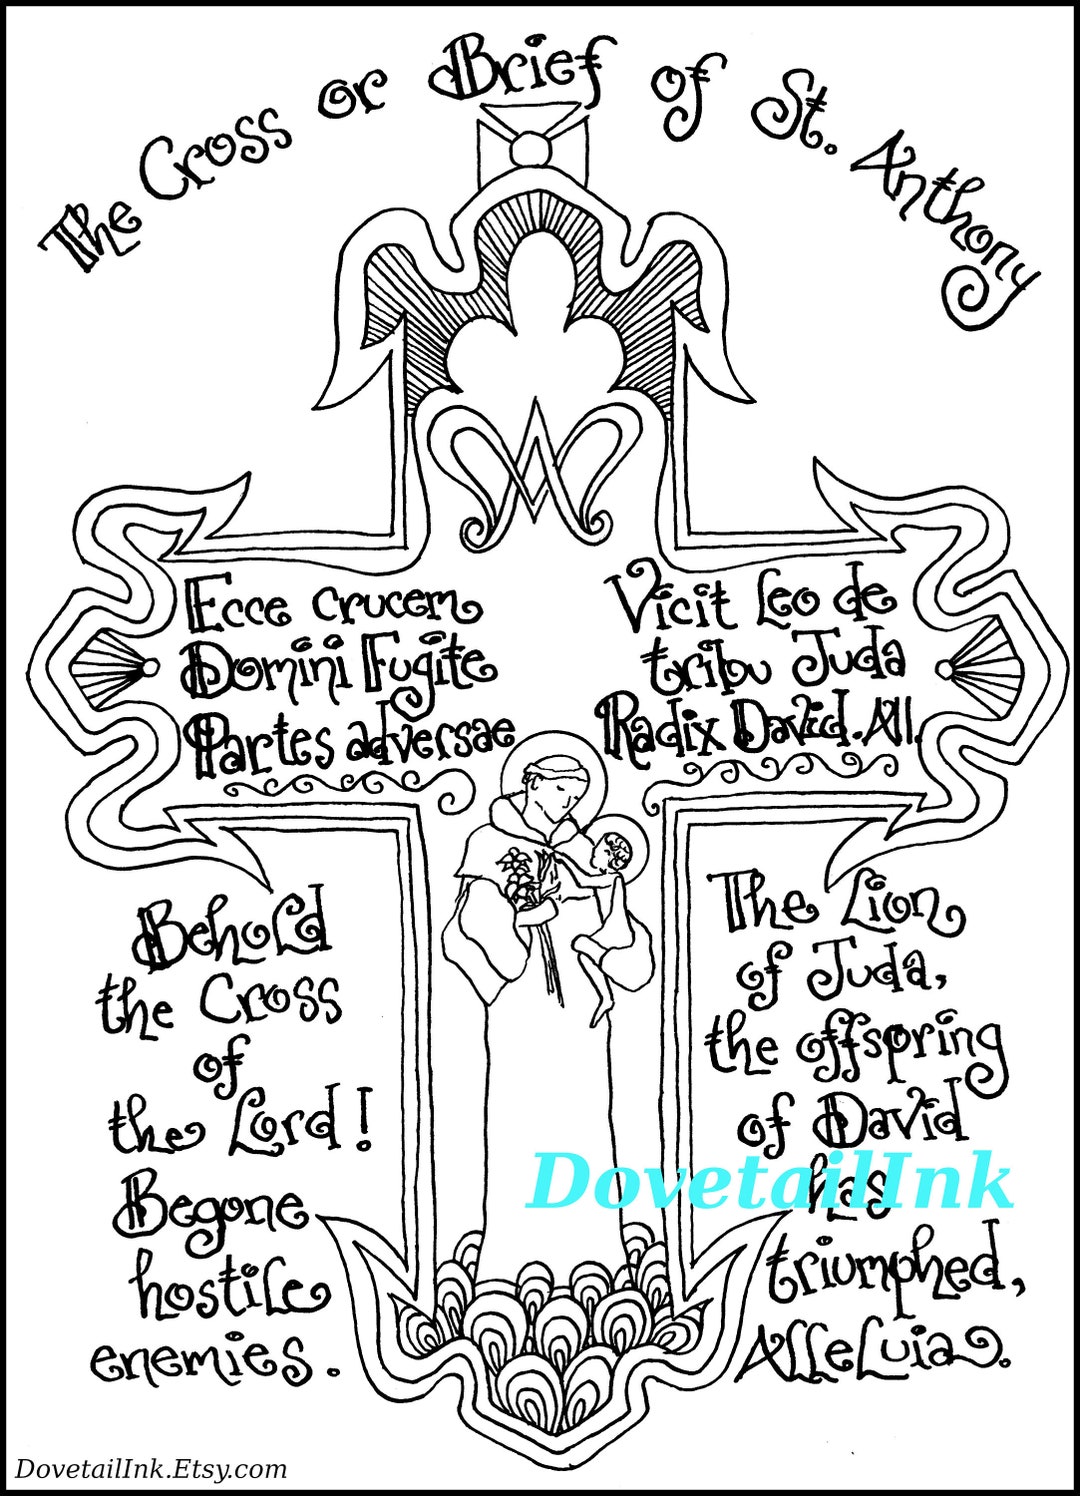 The Cross or Brief of St. Anthony
Ecce crucem
Domini Fugite
Partes adversae
Vicit Leo de
tribu Juda
Radix David. All.
Behold
the Cross
of
the Lord!
Begone
hostile
enemies.
The Lion
of Juda,
the offspring
of David
has
triumphed,
Alleluia.
DovetailInk
DovetailInk.Etsy.com